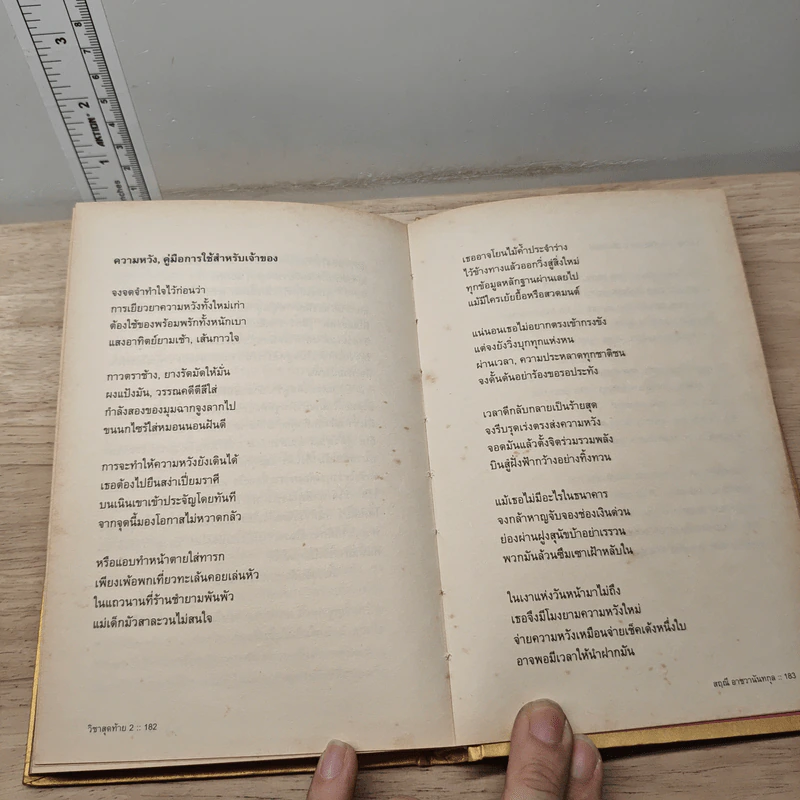 ความหวัง, คู่มือการใช้สำหรับเจ้าของ
จงจดจำทำใจไว้ก่อนว่า
การเยียวยาความหวังทั้งใหม่เก่า
ต้องใช้ของพร้อมพรักทั้งหนักเบา
แสงอาทิตย์ยามเช้า, เส้นกาวใจ
กาวตราช้าง, ยางรัดมัดให้มั่น
ผงแป้งมัน, วรรณคดีตีสีใส่
กำลังสองของมุมฉากจูงลากไป
ขนนกไซร้ใส่หมอนนอนฝันดี
การจะทำให้ความหวังยังเดินได้
เธอต้องไปยืนสง่าเปี่ยมราศี
บนเนินเขาเข้าประจัญโดยทันที
จากจุดนี้มองโอกาสไม่หวาดกลัว
หรือแอบทำหน้าตายใส่ทารก
เพียงเพ้อพกเที่ยวทะเล้นคอยเล่นหัว
ในแถวนานที่ร้านชำยามพันพัว
แม่เด็กมัวสาละวนไม่สนใจ
วิชาสุดท้าย 2 :: 182
เธออาจโยนไม้ค้ำประจำร่าง
ไว้ข้างทางแล้วออกวิ่งสู่สิ่งใหม่
ทุกข้อมูลหลักฐานผ่านเลยไป
แม้มีใครเย้ยยื้อหรือสวดมนต์
แน่นอนเธอไม่อยากตรงเข้ากรงขัง
แต่จงยังวิ่งบุกทุกแห่งหน
ผ่านเวลา, ความประหลาดทุกชาติชน
จงดั้นด้นอย่าร้องขอรอประทัง
เวลาดีกลับกลายเป็นร้ายสุด
จงรีบรุดเร่งตรงส่งความหวัง
จอดมันแล้วตั้งจิตร่วมรวมพลัง
บินสู่ฝั่งฟ้ากว้างอย่างทิ้งทวน
แม้เธอไม่มีอะไรในธนาคาร
จงกล้าหาญจับจองช่องเงินด่วน
ย่องผ่านฝูงสุนัขบ้าอย่าเรรวน
พวกมันล้วนซึมเซาเฝ้าหลับใน
ในเงาแห่งวันหน้ามาไม่ถึง
เธอจึงมีโมงยามความหวังใหม่
จ่ายความหวังเหมือนจ่ายเช็คเด้งหนึ่งใบ
อาจพอมีเวลาให้นำฝากมัน
สฤณี อาชวานันทกุล :: 183
ACTION
inches
1
2
3
1
2
3
4
5
6
7
8